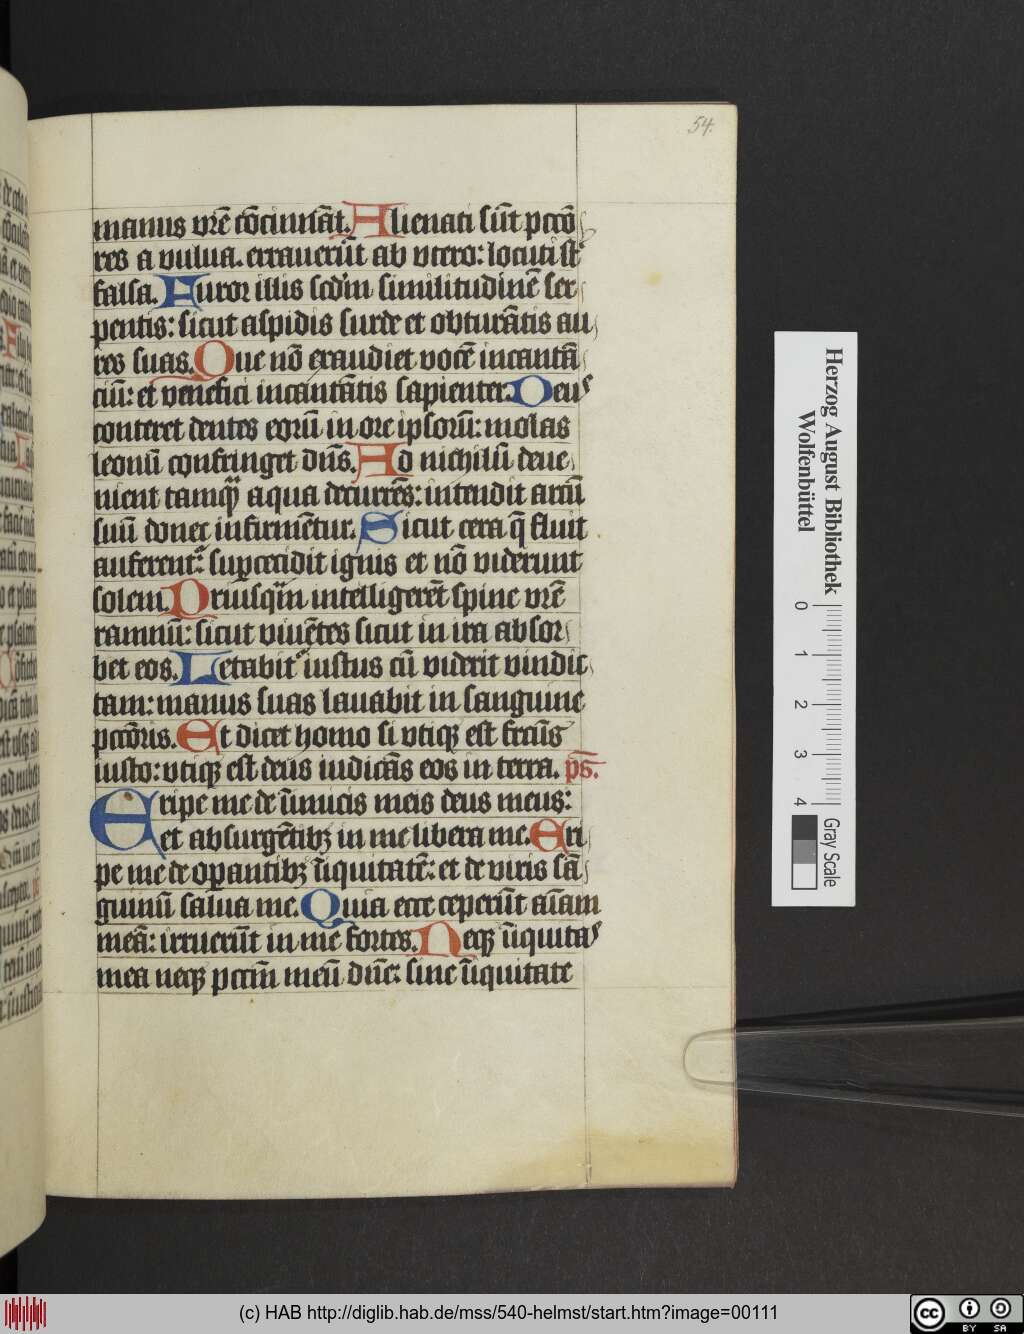 54.
manus vr̄e cōcinnāt. Alienati sūt pccō
res a vulua. errauerūt ab vtero: locuti st̄
falsa. Furor illis scd̄m similitudinē ser
pentis: sicut aspidis surde et obturātis au
res suas. Que nō exaudiet vocē incantā
ciū: et venefici incantātis sapienter. Deus
conteret dentes eorū in ore ipsorū: molas
leonū confringet dn̄s. Ad nichilū deue
nient tamqᷓ aqua decurrēs: intendit arcū
suū donec infirmētur. Sicut cera q̄ fluit
auferent᷑: suꝑcecidit ignis et nō viderunt
solem. Priusqᷓm intelligerēt spine vr̄e
ramnū: sicut viuētes sicut in ira absor
bet eos. Letabit᷑ iustus cū viderit vindic
tam: manus suas lauabit in sanguine
pccōris. Et dicet homo si vtiqꝫ est fructus
iusto: vtiqꝫ est deus iudicās eos in terra. ps̄.
Eripe me de inimicis meis deus meus:
et absurgētibꝫ in me libera me. Eri
pe me de oꝑantibꝫ iniquitatē: et de viris sā
guinū salua me. Quia ecce ceperūt aīam
meā: irruerūt in me fortes. Neqꝫ iniquitas
mea neqꝫ pccm̄ meū dn̄e: sine iniquitate
Herzog August Bibliothek
Wolfenbüttel
0 1 2 3 4
Gray Scale
(c) HAB http://diglib.hab.de/mss/540-helmst/start.htm?image=00111
cc BY SA